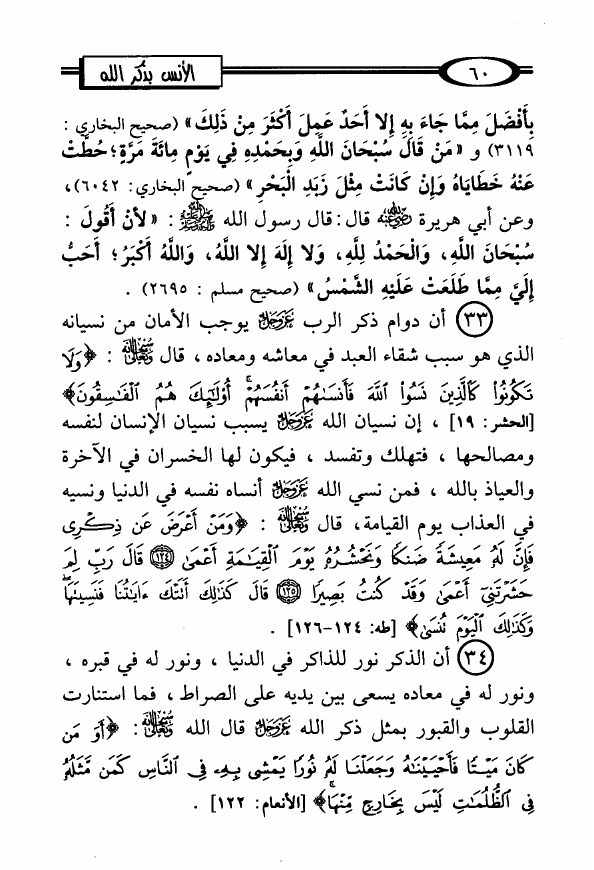 ٦٠
الأنس بذكر الله
بِأَفْضَلَ مِمَّا جَاءَ بِهِ إِلا أَحَدٌ عَمِلَ أَكْثَرَ مِنْ ذَلِكَ» (صحيح البخاري :
٣١١٩) و «مَنْ قَالَ سُبْحَانَ اللَّهِ وَبِحَمْدِهِ فِي يَوْمٍ مِائَةَ مَرَّةٍ؛ حُطَّتْ
عَنْهُ خَطَايَاهُ وَإِنْ كَانَتْ مِثْلَ زَبَدِ الْبَحْرِ» (صحيح البخاري: ٦٠٤٢)،
وعن أبي هريرة رضي الله عنه قال: قال رسول الله ﷺ : «لأَنْ أَقُولَ :
سُبْحَانَ اللَّهِ، وَالْحَمْدُ لِلَّهِ، وَلا إِلَهَ إِلا اللَّهُ، وَاللَّهُ أَكْبَرُ؛ أَحَبُّ
إِلَيَّ مِمَّا طَلَعَتْ عَلَيْهِ الشَّمْسُ» (صحيح مسلم : ٢٦٩٥) .
٣٣ أن دوام ذكر الرب عز وجل يوجب الأمان من نسيانه
الذي هو سبب شقاء العبد في معاشه ومعاده ، قال سبحانه وتعالى : ﴿وَلَا
تَكُونُوا۟ كَٱلَّذِينَ نَسُوا۟ ٱللَّهَ فَأَنسَىٰهُمْ أَنفُسَهُمْ ۚ أُو۟لَـٰٓئِكَ هُمُ ٱلْفَـٰسِقُونَ﴾
[الحشر: ١٩] ، إن نسيان الله عز وجل يسبب نسيان الإنسان لنفسه
ومصالحها ، فتهلك وتفسد ، فيكون لها الخسران في الآخرة
والعياذ بالله ، فمن نسي الله عز وجل أنساه نفسه في الدنيا ونسيه
في العذاب يوم القيامة، قال سبحانه وتعالى : ﴿وَمَنْ أَعْرَضَ عَن ذِكْرِى
فَإِنَّ لَهُۥ مَعِيشَةً ضَنكًا وَنَحْشُرُهُۥ يَوْمَ ٱلْقِيَـٰمَةِ أَعْمَىٰ ١٢٤ قَالَ رَبِّ لِمَ
حَشَرْتَنِىٓ أَعْمَىٰ وَقَدْ كُنتُ بَصِيرًا ١٢٥ قَالَ كَذَٰلِكَ أَتَتْكَ ءَايَـٰتُنَا فَنَسِيتَهَا ۖ
وَكَذَٰلِكَ ٱلْيَوْمَ تُنسَىٰ﴾ [طه: ١٢٤-١٢٦] .
٣٤ أن الذكر نور للذاكر في الدنيا ، ونور له في قبره ،
ونور له في معاده يسعى بين يديه على الصراط ، فما استنارت
القلوب والقبور بمثل ذكر الله عز وجل قال الله سبحانه وتعالى: ﴿أَوَ مَن
كَانَ مَيْتًا فَأَحْيَيْنَـٰهُ وَجَعَلْنَا لَهُۥ نُورًا يَمْشِى بِهِۦ فِى ٱلنَّاسِ كَمَن مَّثَلُهُۥ
فِى ٱلظُّلُمَـٰتِ لَيْسَ بِخَارِجٍ مِّنْهَا ۚ﴾ [الأنعام: ١٢٢] .